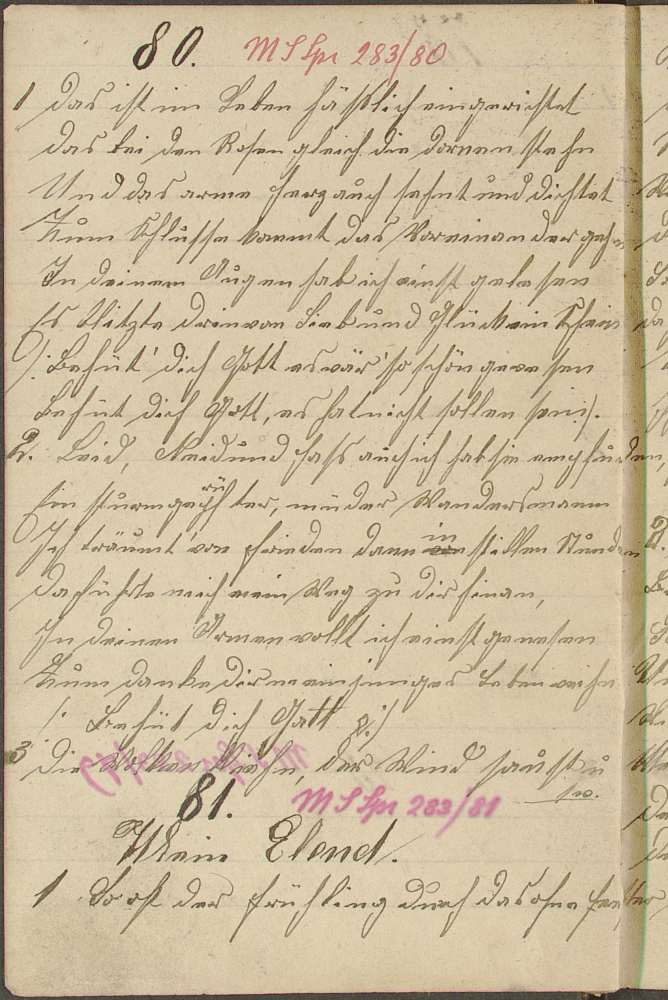 80. MS Spr 283/80
1 Das ist im Leben häßlich eingerichtet
das bei den Rosen gleich die dornen stehn
Und das arme Herz auch sehnt und dichtet
Zum Schlusse kommt das Voreinandergehn
In deinem Augen hab ich einst gelesen
Es blitzte drin von Lieb und Glück ein Schein
/: Behüt' dich Gott es wär' so schön gewesen
Behüt dich Gott, es hat nicht sollen sein :/.
2. Leid, Neid und Hass auch ich hab sie empfunden,
Ein sturmgeprüfter, müder Wandersmann
Ich träumt' von Frieden dann in stillen Stunden
da führte mich mein Weg zu dir hinan,
In deinen Armen wollt ich einst genesen
Zum danke dir mein junges Leben weihn
/: Behüt dich Gott :/
3 Die Wolken fliehn, der Wind saust u
sw.
81. MS Spr 283/81
Mein Elend.
1 So oft der Frühling durch das ofne Fenster